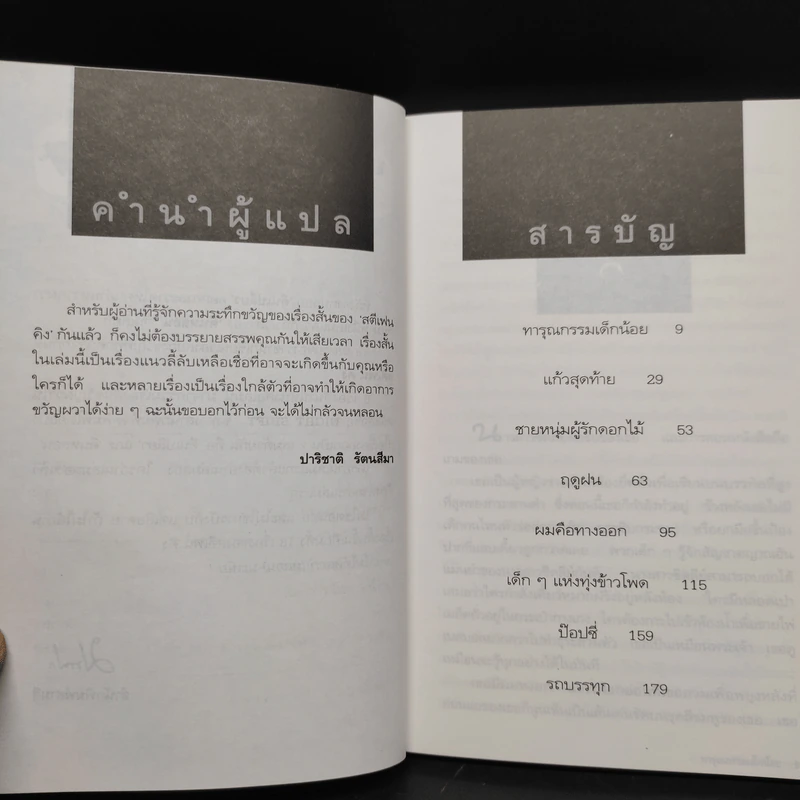 คำนำผู้แปล
สำหรับผู้อ่านที่รู้จักความระทึกขวัญของเรื่องสั้นของ 'สตีเฟน
คิง' กันแล้ว ก็คงไม่ต้องบรรยายสรรพคุณกันให้เสียเวลา เรื่องสั้น
ในเล่มนี้เป็นเรื่องแนวลี้ลับเหลือเชื่อที่อาจจะเกิดขึ้นกับคุณหรือ
ใครก็ได้ และหลายเรื่องเป็นเรื่องใกล้ตัวที่อาจทำให้เกิดอาการ
ขวัญผวาได้ง่าย ๆ ฉะนั้นขอบอกไว้ก่อน จะได้ไม่กลัวจนหลอน
ปาริชาติ รัตนสีมา
สารบัญ
ทารุณกรรมเด็กน้อย 9
แก้วสุดท้าย 29
ชายหนุ่มผู้รักดอกไม้ 53
ฤดูฝน 63
ผมคือทางออก 95
เด็ก ๆ แห่งทุ่งข้าวโพด 115
ป๊อปซี่ 159
รถบรรทุก 179